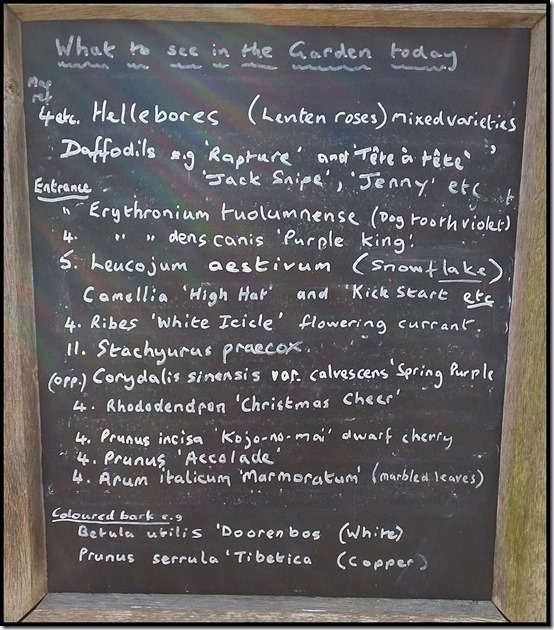 What to see in the Garden today
Map
ref
4 etc. Hellebores (Lenten roses) mixed varieties
Daffodils e.g 'Rapture' and 'Tête à tête'
'Jack Snipe', 'Jenny' etc
Entrance
" Erythronium tuolumnense (Dog tooth violet)
4. " " dens canis 'Purple King'.
5. Leucojum aestivum (Snowflake)
Camellia 'High Hat' and 'Kick Start etc
4. Ribes 'White Icicle' flowering currant.
11. Stachyurus praecox.
(opp.) Corydalis sinensis var. calvescens 'Spring Purple
4. Rhododendron 'Christmas Cheer'
4. Prunus incisa 'Kojo-no-mai' dwarf cherry
4. Prunus 'Accolade'
4. Arum italicum 'Marmoratum' (marbled leaves)
Coloured bark e.g
Betula utilis 'Doorenbos (White)
Prunus serrula 'Tibetica (Copper)